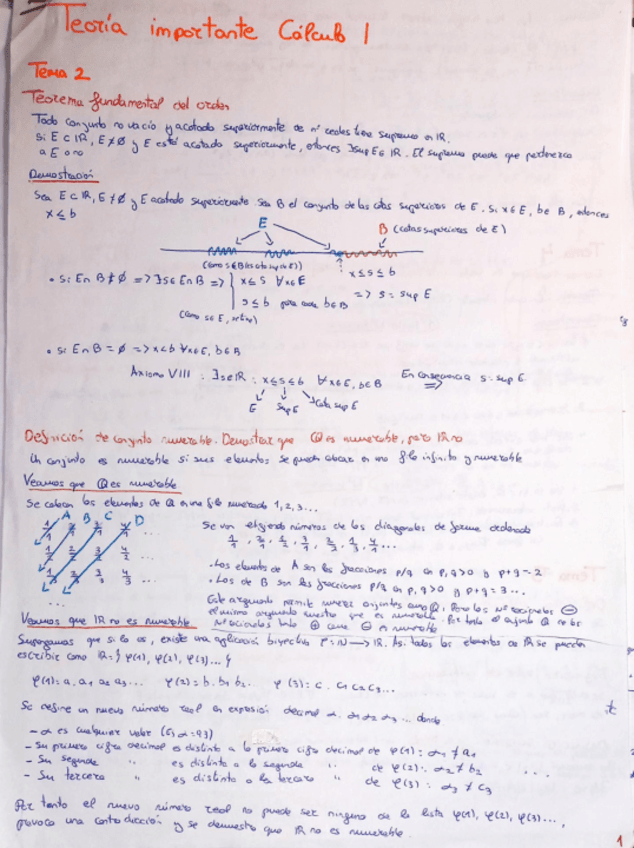 Teoría importante Cálculo 1
Tema 2
Teorema fundamental del orden
Todo conjunto no vacío y acotado superiormente de nº reales tiene supremo en IR.
Si E ⊂ IR, E ≠ ∅ y E está acotado superiormente, entonces ∃ sup E ∈ IR. El supremo puede que pertenezca
a E o no
Demostración
Sea E ⊂ IR, E ≠ ∅ y E acotado superiormente. Sea B el conjunto de las cotas superiores de E. Si x ∈ E, b ∈ B, entonces
x ≤ b
E
B (cotas superiores de E)
(como s ∈ B es cota sup de E)
x ≤ s ≤ b
• Si E ∩ B ≠ ∅ => ∃ s ∈ E ∩ B => x ≤ s ∀x ∈ E
s ≤ b para cada b ∈ B
=> s = sup E
(como s ∈ E,
• Si E ∩ B = ∅ => x < b ∀x ∈ E, b ∈ B
Axioma VIII : ∃ s ∈ IR : x ≤ s ≤ b ∀x ∈ E, b ∈ B En consecuencia => s = sup E
E Sup E Cota sup E
Definición de conjunto numerable. Demostrar que Q es numerable, pero IR no
Un conjunto es numerable si sus elementos se pueden colocar en una fila infinita y numerable
Veamos que Q es numerable
Se colocan los elementos de Q en una fila numerada 1, 2, 3...
A B C D
1/1 2/1 3/1 4/1
1/2 2/2 3/2 4/2 ...
1/3 2/3 3/3 4/3 ...
...
Se van eligiendo números de las diagonales de forma ordenada
1/1, 2/1, 1/2, 3/1, 2/2, 1/3, 4/1 ...
• Los elementos de A son las fracciones p/q con p, q > 0 y p + q = 2
• Los de B son las fracciones p/q con p, q > 0 y p + q = 3 ...
Este argumento permite numerar conjuntos como Q. Para los nº racionales ⊖
el mismo argumento muestra que es numerable. Por tanto el conjunto Q de los
nº racionales tanto ⊕ como ⊖ es numerable
Veamos que IR no es numerable
Supongamos que si lo es, existe una aplicación biyectiva φ = IN → IR. Así todos los elementos de IR se pueden
escribir como IR = { φ(1), φ(2), φ(3) ... }
φ(1) = a, a1 a2 a3 ... φ(2) = b, b1 b2 ... φ(3) = c, c1 c2 c3 ...
Se define un nuevo número real en expresión decimal α, α1 α2 α3 ... donde
- α es cualquier valor
- Su primera cifra decimal es distinta a la primera cifra decimal de φ(1) : α1 ≠ a1
- Su segunda " es distinta a la segunda " de φ(2) : α2 ≠ b2
- Su tercera " es distinta a la tercera " de φ(3) : α3 ≠ c3
....
Por tanto el nuevo número real no puede ser ninguno de la lista φ(1), φ(2), φ(3) ...,
provoca una contradicción y se demuestra que IR no es numerable.
1